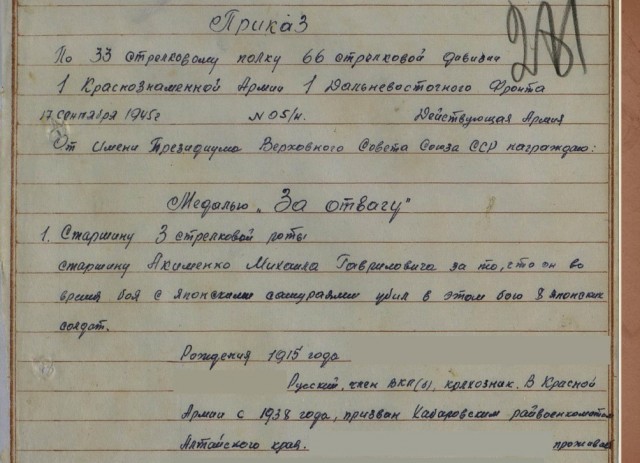 Приказ
281
По 33 стрелковому полку 66 стрелковой дивизии
1 Краснознаменной Армии 1 Дальневосточного Фронта
17 сентября 1945г N 05/н. Действующая Армия
От имени Президиума Верховного Совета Союза ССР награждаю:
Медалью „За отвагу"
1. Старшину 3 стрелковой роты
старшину Акименко Михаила Гавриловича за то, что он во
время боя с японскими самураями убил в этом бою 8 японских
солдат.
Рождения 1915 года
Русский, член ВКП(б), колхозник. В Красной
Армии с 1938 года, призван Хабаровским райвоенкоматом
Алтайского края. прожива